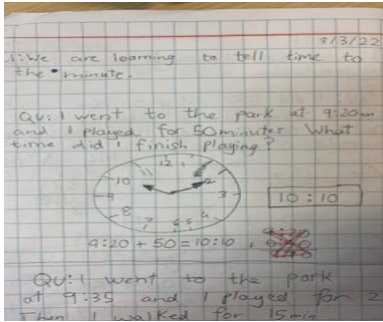 3/3/22
1: We are learning to tell time to
the minute.
Qu: I went to the park at 9:20am
and I played for 50 minutes What
time did I finish playing?
12
10
2
9
3
8
4
7
6 5
10:10
9:20 + 50 = 10:10
Qu: I went to the park
at 9:35 and I played for 2
Then I walked for 15 min